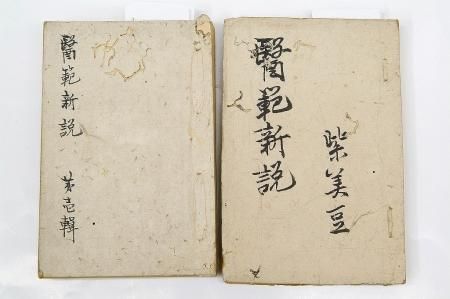 醫範新説
第壱輯
醫範新説
柴美豆